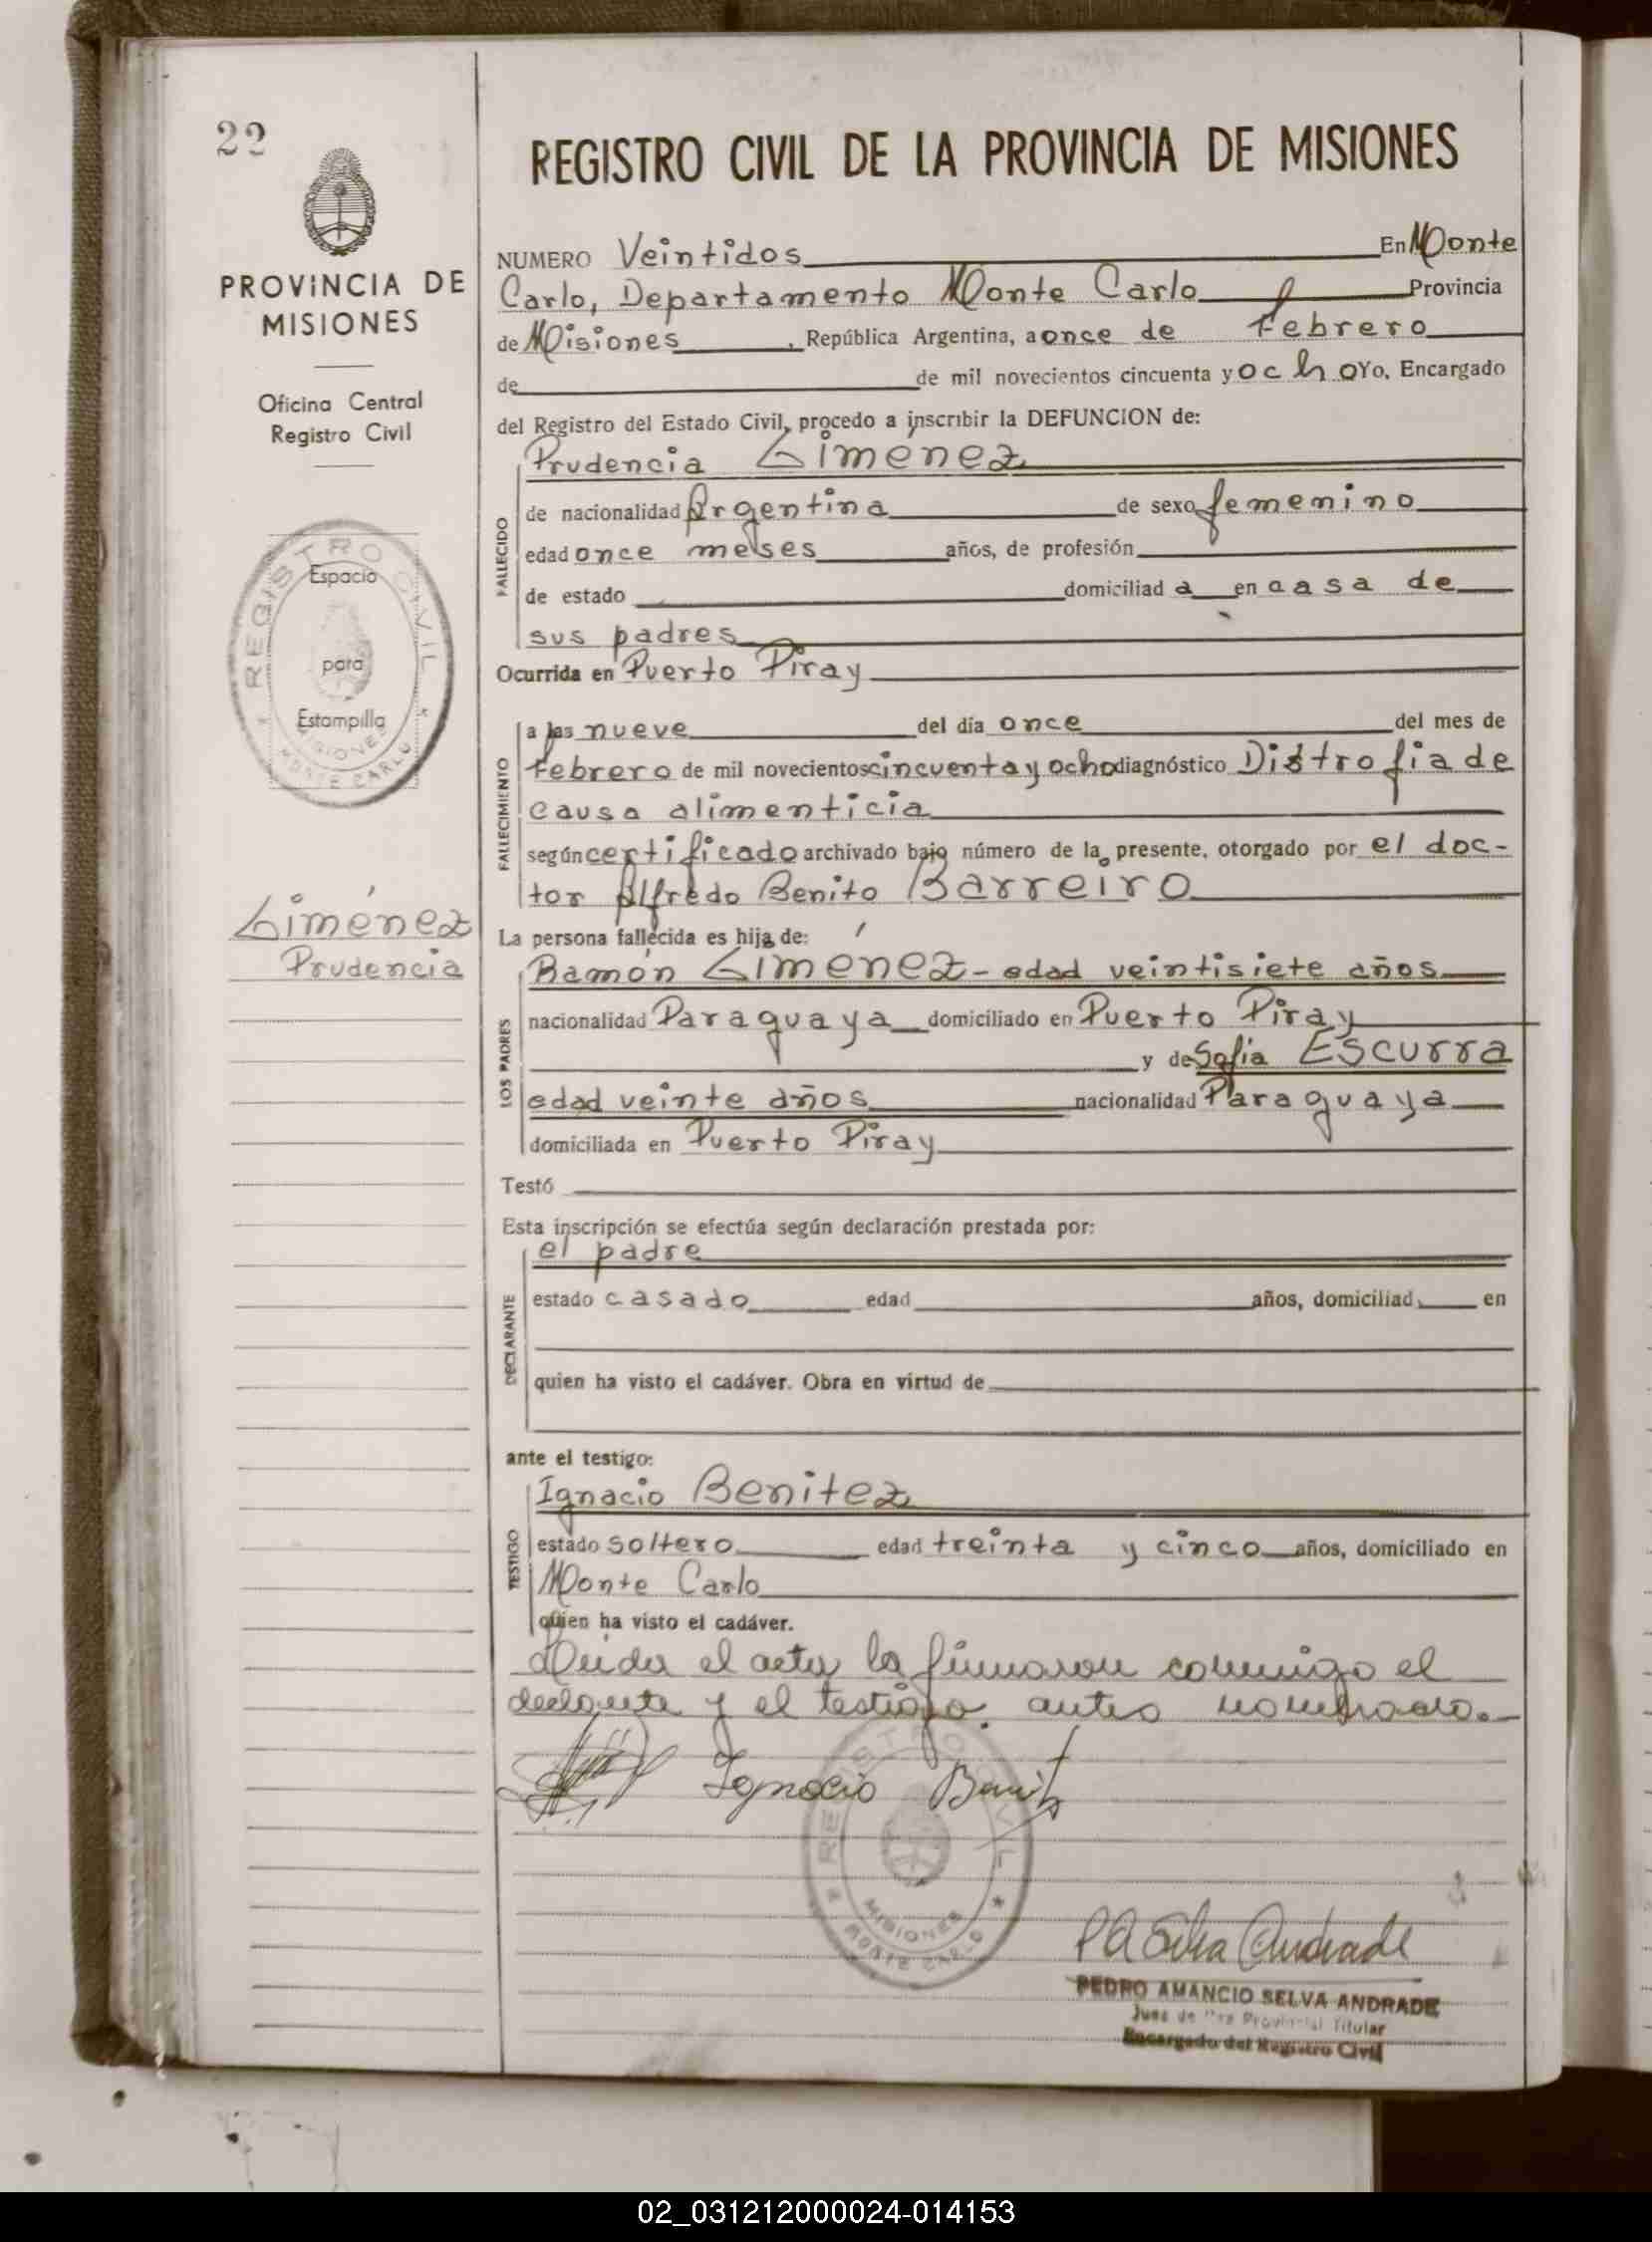 22
PROVINCIA DE
MISIONES
Oficina Central
Registro Civil
REGISTRO CIVIL
Espacio
para
Estampilla
MISIONES
MONTE CARLO
Giménez
Prudencia
REGISTRO CIVIL DE LA PROVINCIA DE MISIONES
NUMERO Veintidos En Monte
Carlo, Departamento Monte Carlo Provincia
de Misiones, República Argentina, a once de Febrero
de de mil novecientos cincuenta y ocho Yo, Encargado
del Registro del Estado Civil, procedo a inscribir la DEFUNCION de:
FALLECIDO
Prudencia Giménez
de nacionalidad Argentina de sexo femenino
edad once meses años, de profesión
de estado domiciliad a en casa de
sus padres
Ocurrida en Puerto Piray
FALLECIMIENTO
a las nueve del día once del mes de
Febrero de mil novecientos cincuenta y ocho diagnóstico Distrofia de
causa alimenticia
según certificado archivado bajo número de la presente, otorgado por el doc-
tor Alfredo Benito Barreiro
La persona fallecida es hija de:
LOS PADRES
Ramón Giménez - edad veintisiete años
nacionalidad Paraguaya domiciliado en Puerto Piray
y de Sofia Escurra
edad veinte años nacionalidad Paraguaya
domiciliada en Puerto Piray
Testó
Esta inscripción se efectúa según declaración prestada por:
DECLARANTE
el padre
estado casado edad años, domiciliad en
quien ha visto el cadáver. Obra en virtud de
ante el testigo:
TESTIGO
Ignacio Benitez
estado soltero edad treinta y cinco años, domiciliado en
Monte Carlo
quien ha visto el cadáver.
Leida el acta la firmaron conmigo el
declarante y el testigo antes nombrado.
Ignacio Benitz
REGISTRO CIVIL
MISIONES
MONTE CARLO
PA Selva Andrade
PEDRO AMANCIO SELVA ANDRADE
Juez de Paz Provincial Titular
Encargado del Registro Civil
02_031212000024-014153